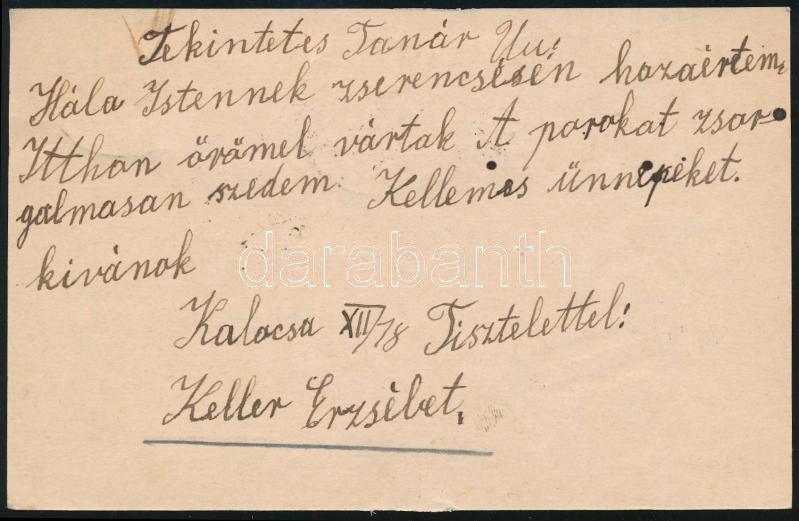 Tekintetes Tanár Uu:
Hála Istennek zserencsésén hazaértem,
Itthon örömel vártak A porokat zsor-
galmasan szedem Kellemes ünnepéket.
kivánok
darabanth
Kalocsa XII/18 Tisztelettel:
Keller Erzsébet.